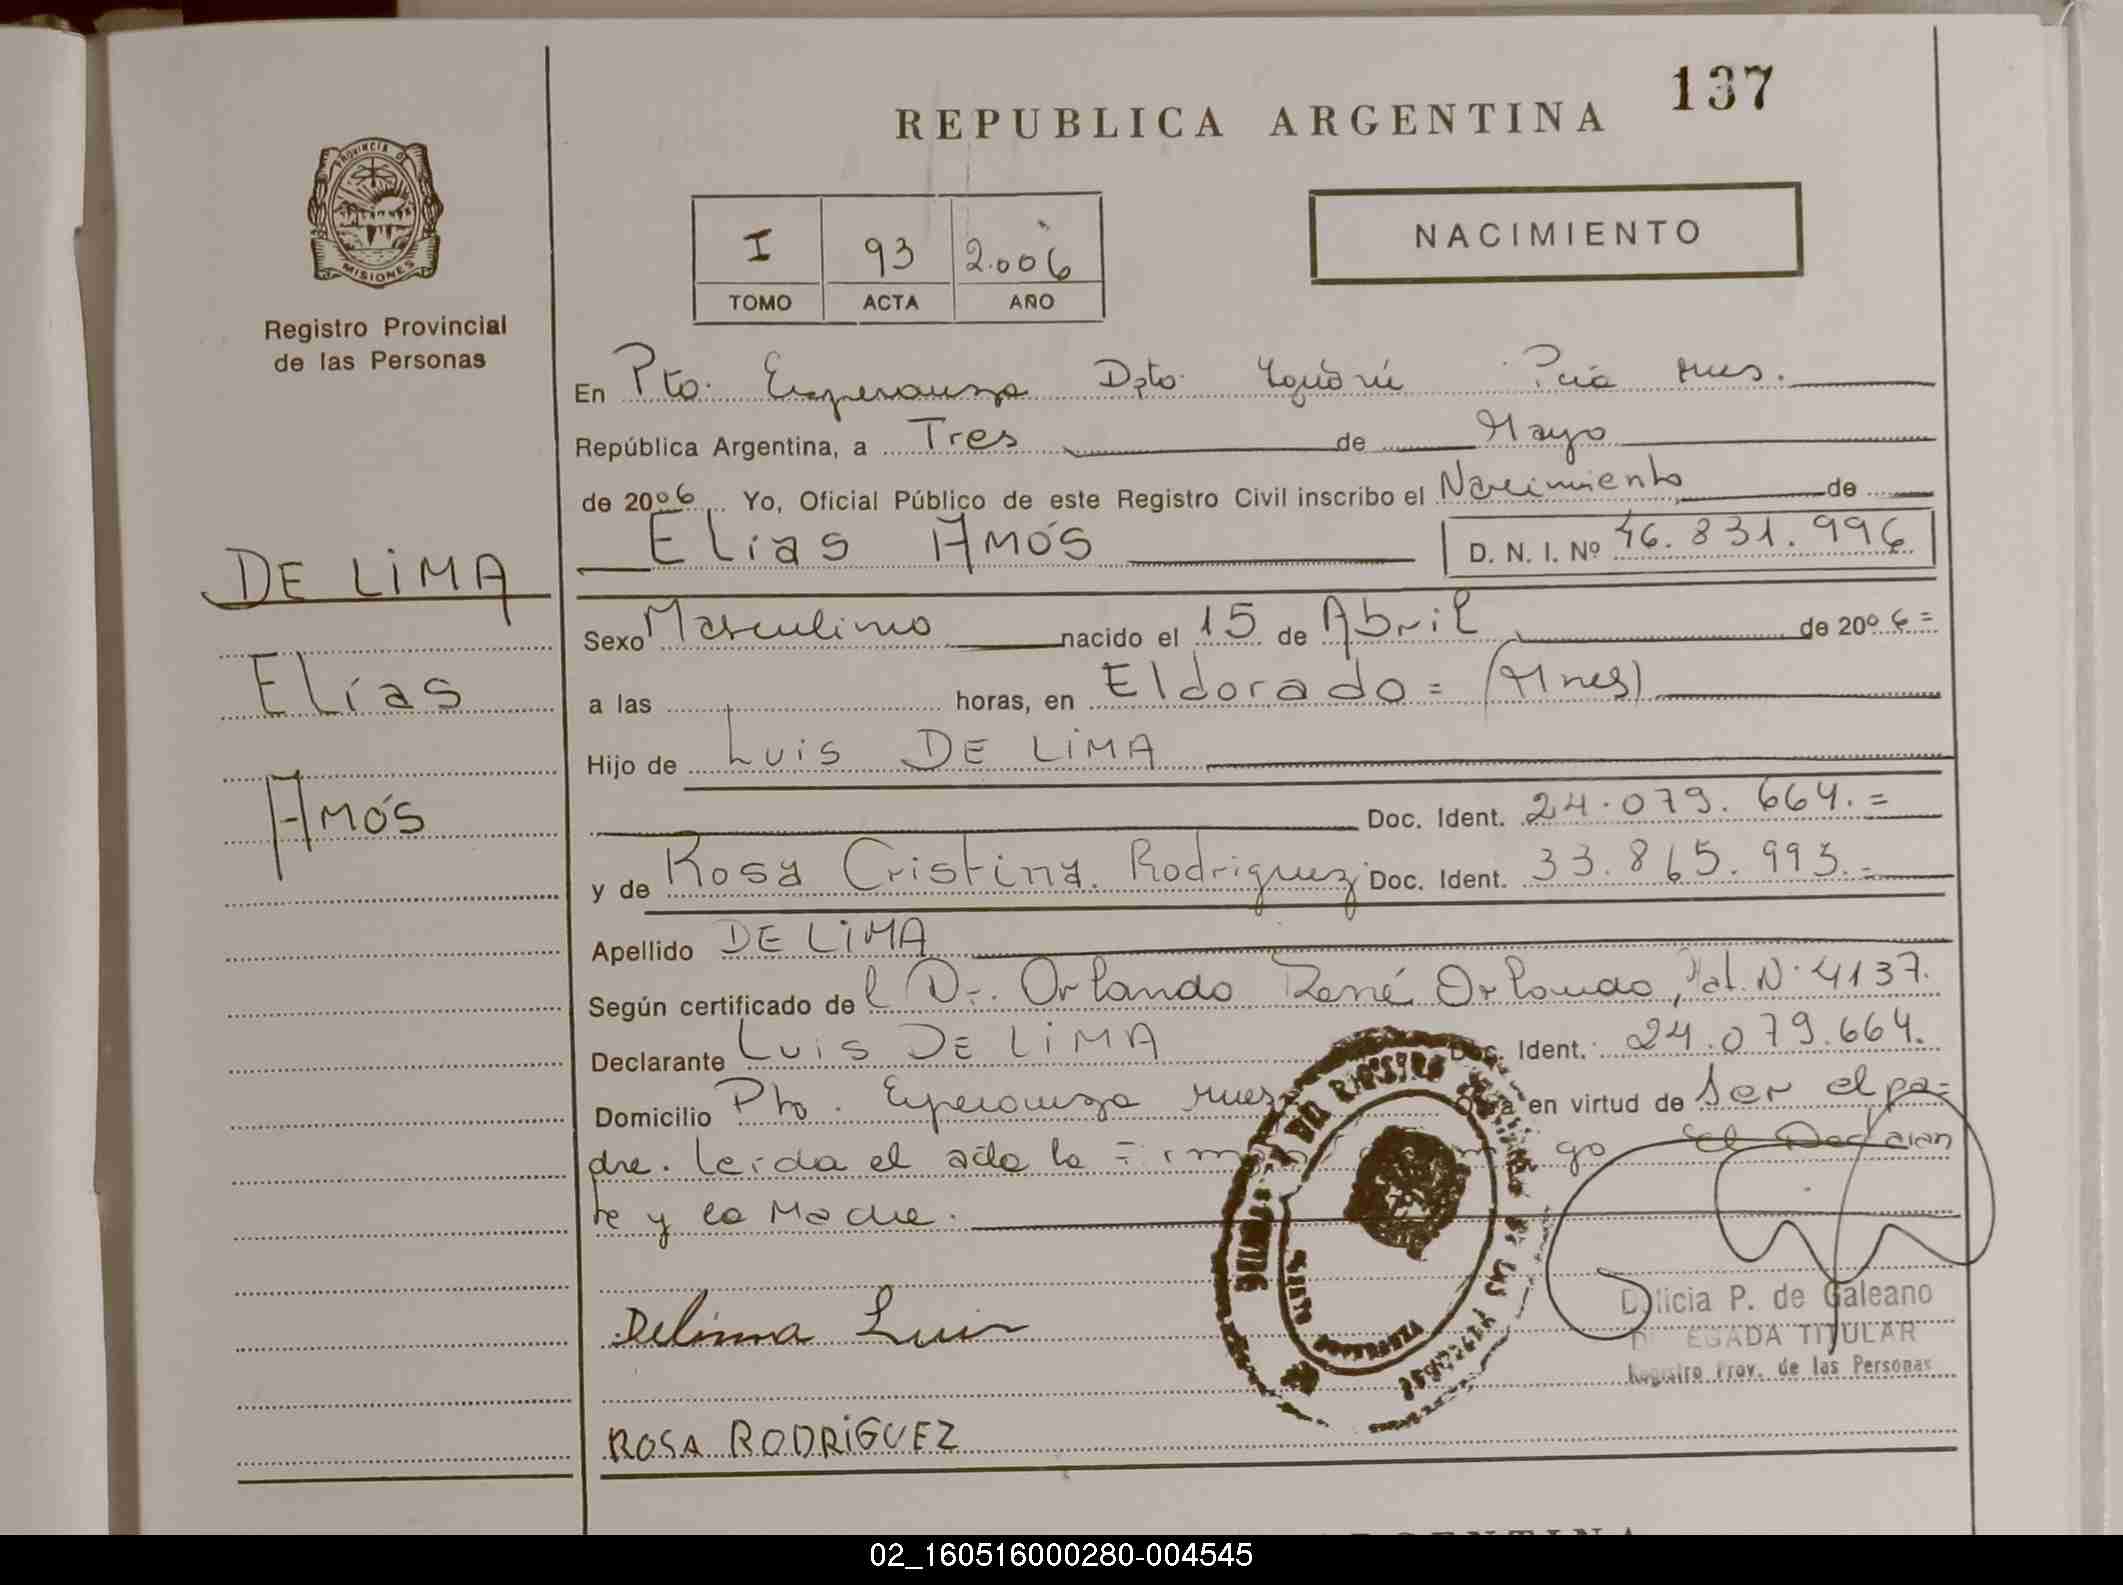 137
REPUBLICA ARGENTINA
PROVINCIA DE
MISIONES
Registro Provincial
de las Personas
NACIMIENTO
I 93 2.006
TOMO ACTA AÑO
En Pto. Esperanza Dpto. Iguazú Pcia Mnes.
República Argentina, a Tres de Mayo
de 2006 Yo, Oficial Público de este Registro Civil inscribo el Nacimiento de
Elías Amós D. N. I. Nº 46.831.996
DE LIMA
Elías
Amós
Sexo Masculino nacido el 15 de Abril de 2006=
a las horas, en Eldorado = (Mnes)
Hijo de Luis DE LIMA
Doc. Ident. 24.079.664.=
y de Rosa Cristina Rodriguez Doc. Ident. 33.865.993.=
Apellido DE LIMA
Según certificado del Dr. Orlando René Orlando, Mat. Nº 4137.
Declarante Luis DE LIMA Doc. Ident. 24.079.664.
Domicilio Pto. Esperanza Mnes Obra en virtud de Ser el pa=
dre. Leída el acta la go el Declaran
te y la Madre.
Delima Luis
Delicia P. de Galeano
DELEGADA TITULAR
Registro Prov. de las Personas
ROSA RODRIGUEZ
ARGENTINA
02_160516000280-004545